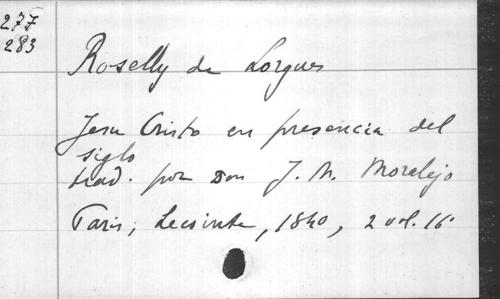 277
283
Roselly de Lorgues
Jesu Cristo en presencia del
siglo
trad. por Don J. M. Moralejo
Paris, Lecointe, 1840, 2 vol. 16°